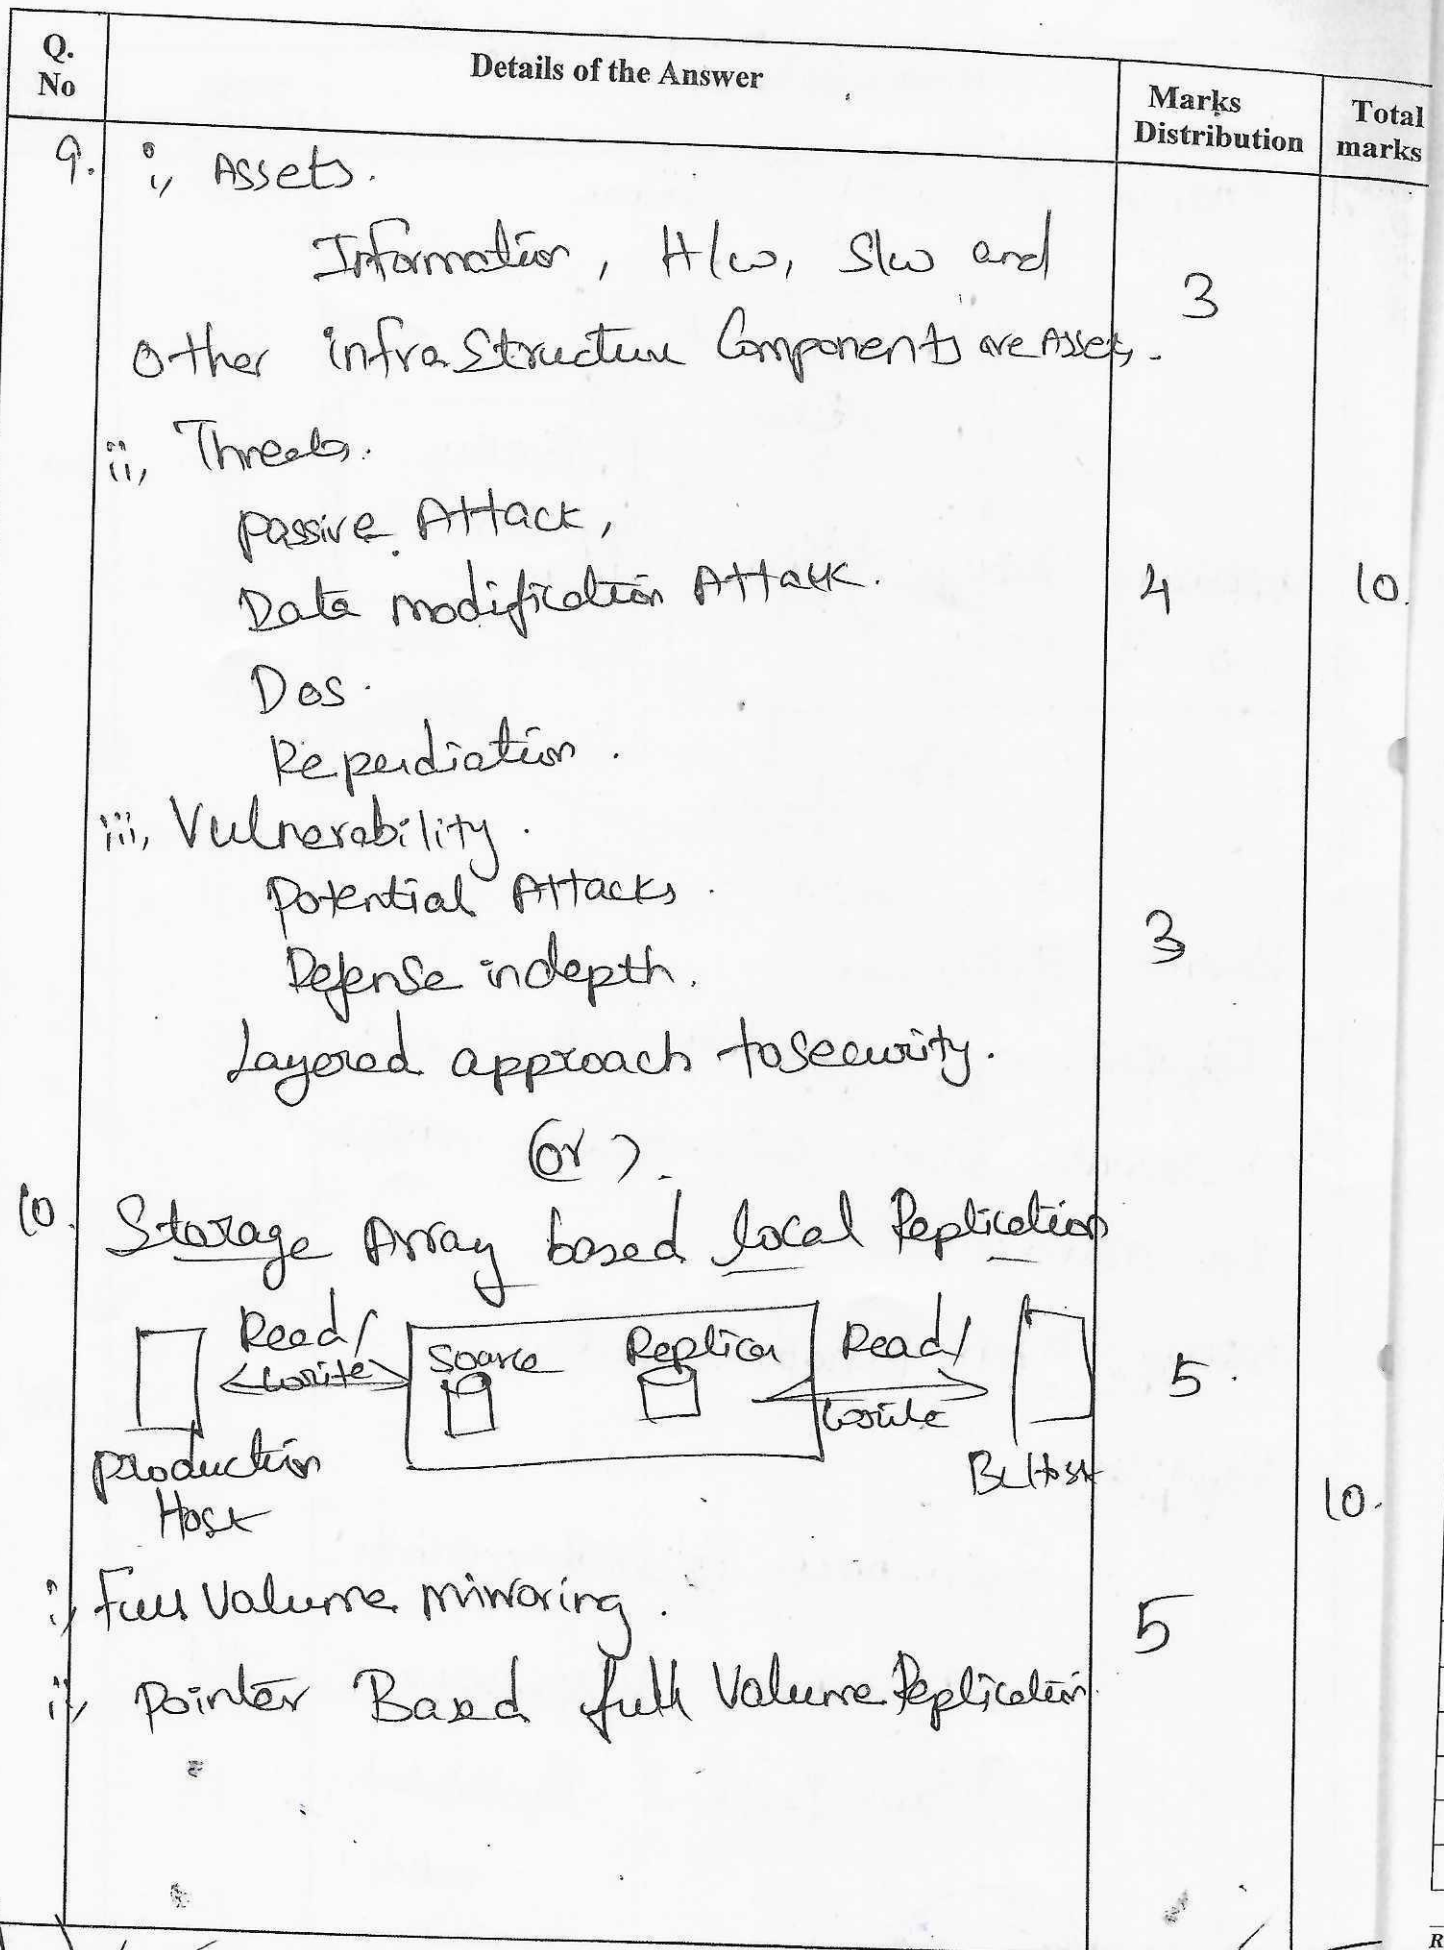 Q. No
Details of the Answer
Marks Distribution
Total marks
9. i, Assets.
Information, H/w, S/w and
3
Other infrastructure Components are Assets.
ii, Threats.
passive Attack,
Data modification Attack.
4
10.
Dos.
Repudiation.
iii, Vulnerability.
Potential Attacks.
3
Defense indepth.
Layered approach to security.
(or).
10. Storage Array based local Replication
Read/
write
Source
Replica
Read/
write
5.
Production
Host
BC Host
10.
i, Full Volume mirroring.
5
ii, Pointer Based full Volume Replication.
R